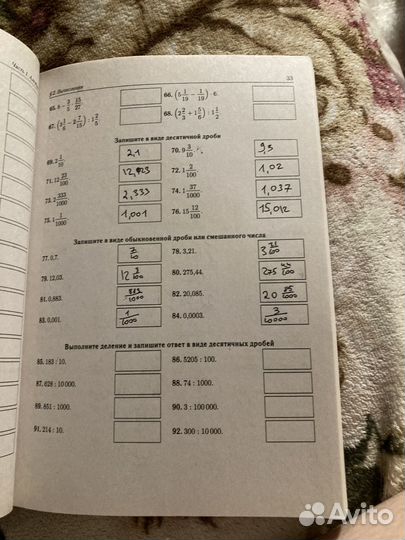 § 2. Вычисления 33
65. 8 − 3/5 · 15/27 66. (5 1/19 − 1/19) · 6.
68. (2 2/3 + 1 5/6) : 1 1/2
Запишите в виде десятичной дроби
69. 2 1/10 2,1 70. 9 3/10 9,3
71. 12 23/100 72. 1 2/100 1,02
73. 2 333/1000 2,333 74. 1 37/1000 1,037
75. 1 1/1000 1,001 76. 15 12/100 15,012
Запишите в виде обыкновенной дроби или смешанного числа
77. 0,7. 7/10 78. 3,21. 3 21/100
79. 12,03. 12 3/100 80. 275,44. 275 44/100
81. 0,883. 883/1000 82. 20,085. 20 85/1000
83. 0,001. 1/1000 84. 0,0003. 3/10000
Выполните деление и запишите ответ в виде десятичных дробей
85. 183 : 10. 86. 5205 : 100.
87. 628 : 10 000. 88. 74 : 1000.
89. 851 : 1000. 90. 3 : 100 000.
91. 214 : 10. 92. 300 : 10 000.
Avito